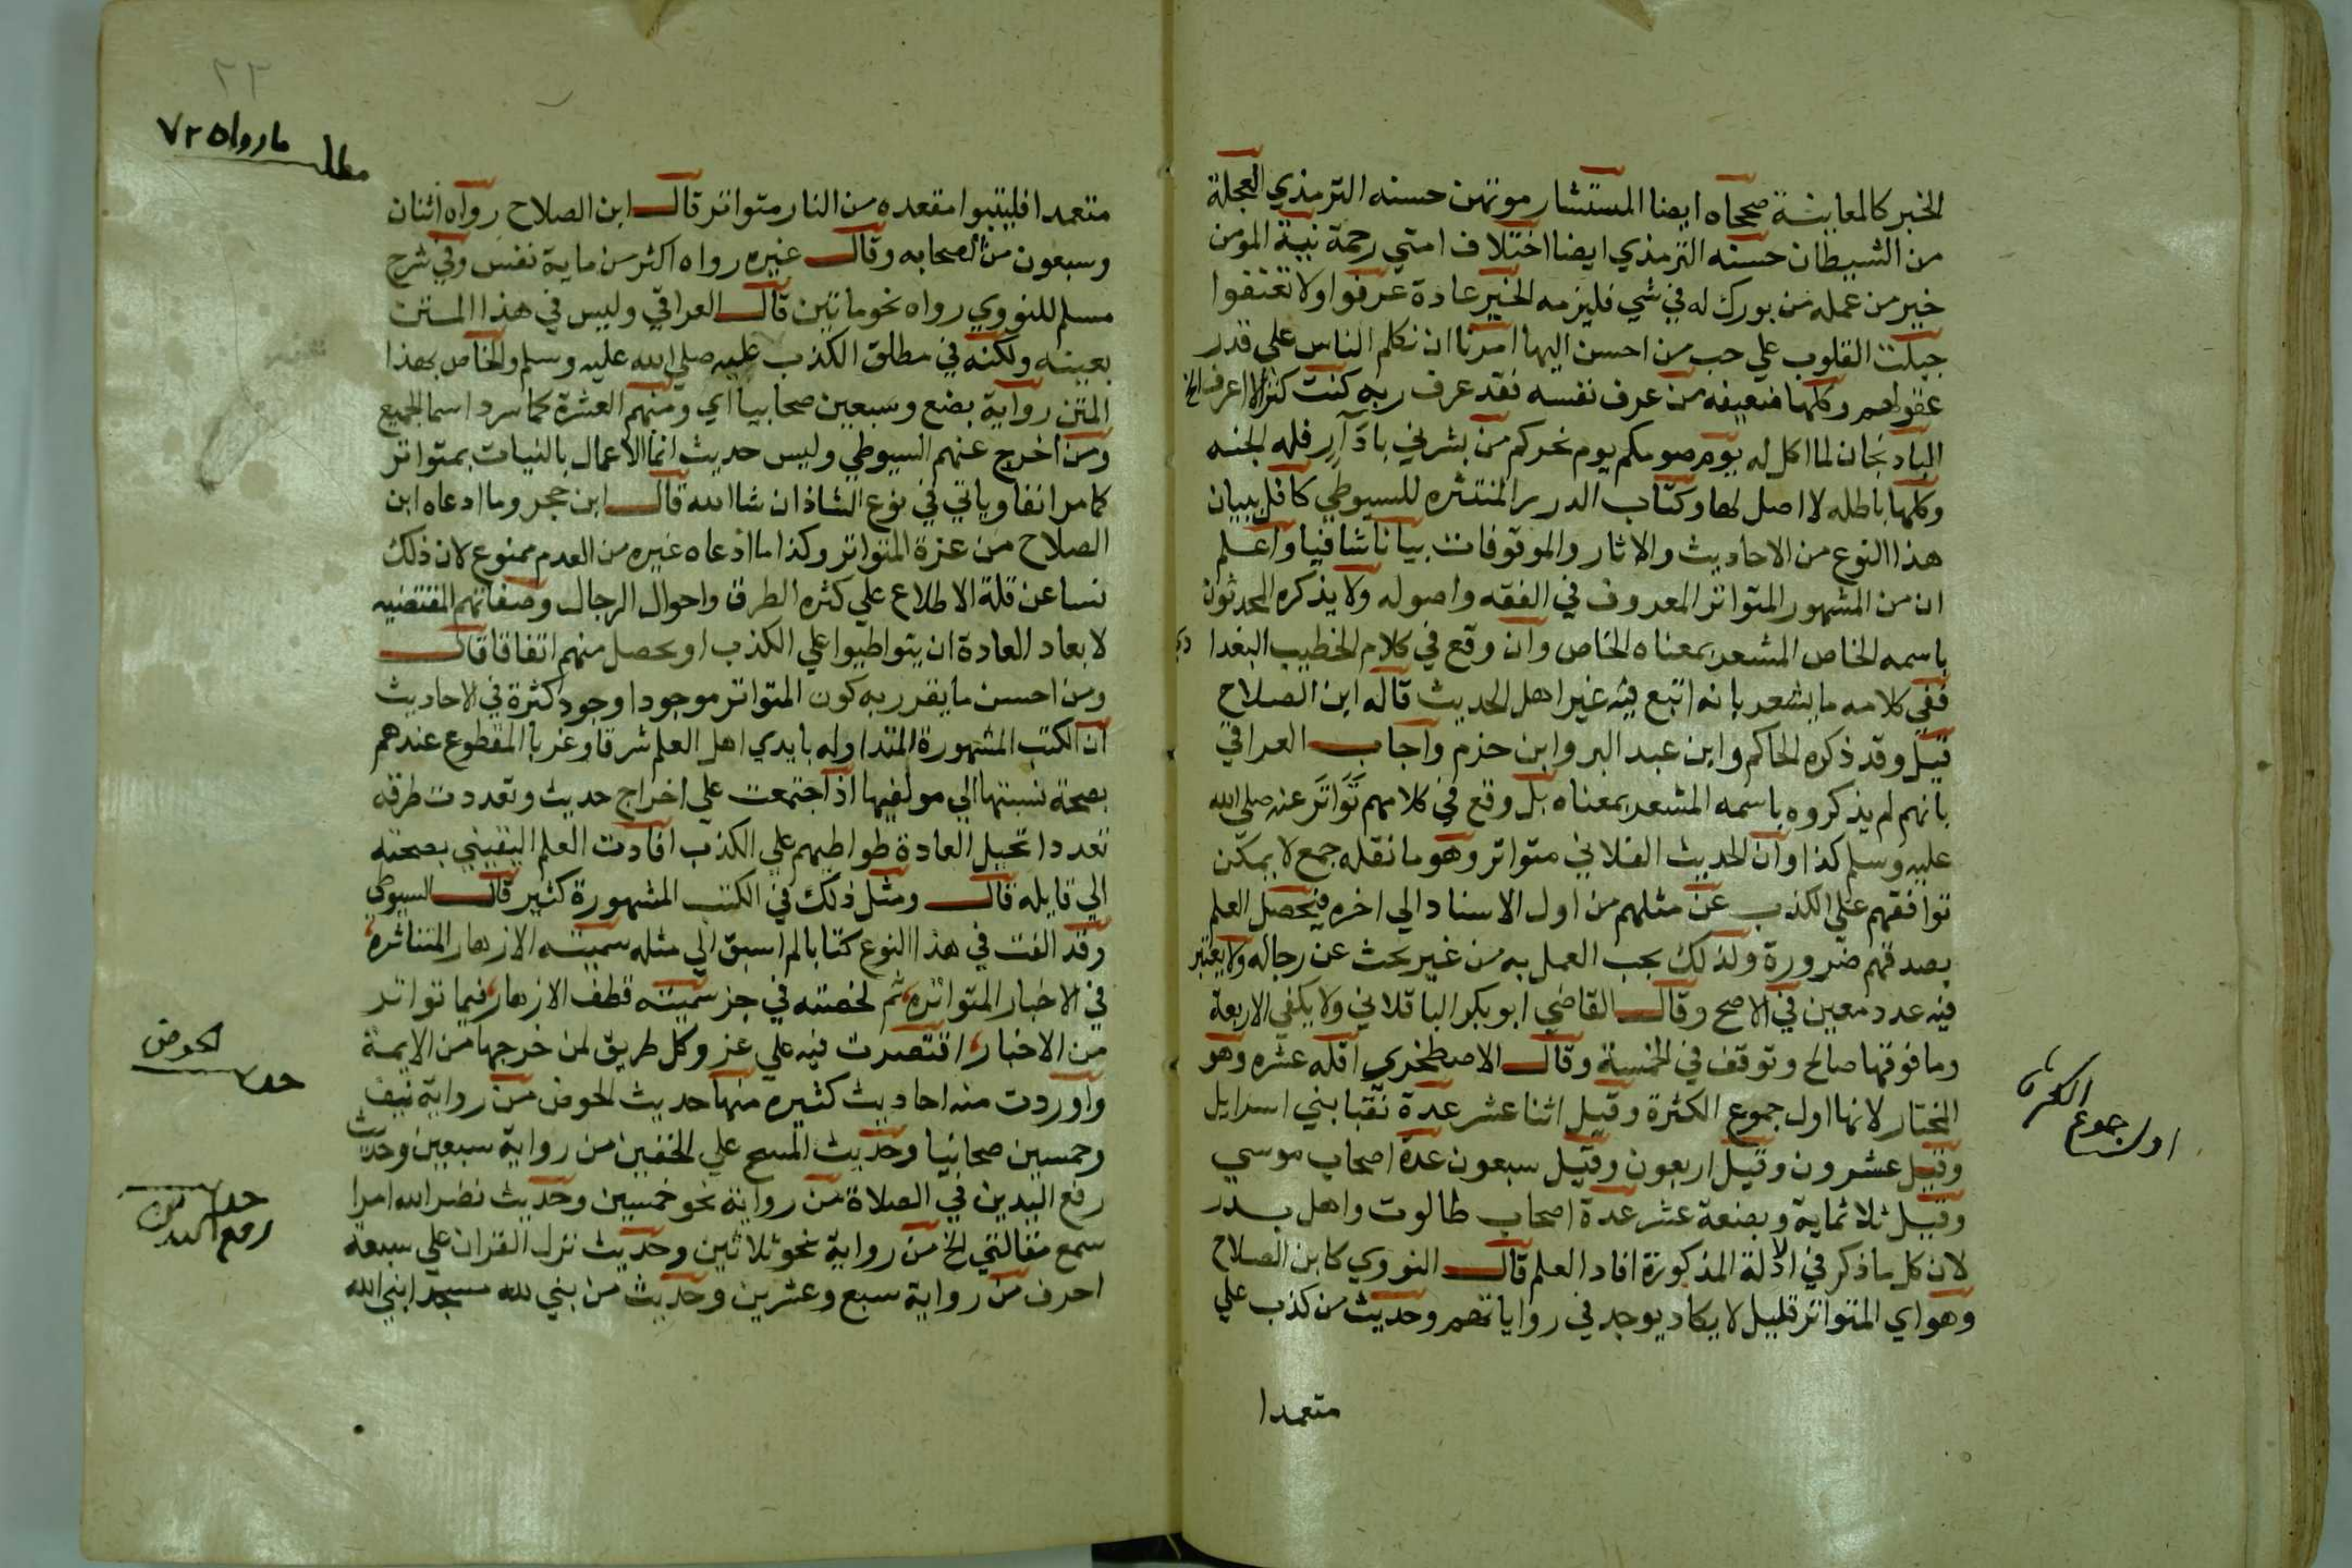 الخبر كالمعاينة صححاه ايضا المستشار موتمن حسنه الترمذي العجلة
من الشيطان حسنه الترمذي ايضا اختلاف امتي رحمة نية المومن
خير من عمله من بورك له في شي فليزمه الخير عادة عرفوا ولا تعنفوا
جبلت القلوب علي حب من احسن اليها امرنا ان نكلم الناس علي قدر
عقولهم وكلها ضعيفه من عرف نفسه فقد عرف ربه كنت كنزا لا اعرف الخ
الباد نجان لما اكل له يوم صومكم يوم نحركم من بشرني باذار فله الجنه
وكلها باطله لا اصل لها وكتاب الدرر المنتثره للسيوطي كافل ببيان
هذا النوع من الاحاديث والاثار والموقوفات بيانا شافيا واعلم
ان من المشهور المتواتر المعروف في الفقه واصوله ولا يذكره المحدثون
باسمه الخاص المشعر بمعناه الخاص وان وقع في كلام الخطيب البغدا دي
ففي كلامه ما يشعر بانه اتبع فيه غير اهل الحديث قاله ابن الصلاح
قيل وقد ذكره الحاكم وابن عبد البر وابن حزم واجاب العراقي
بانهم لم يذكروه باسمه المشعر بمعناه بل وقع في كلامهم تواتر عنه صلي الله
عليه وسلم كذا وان الحديث الفلاني متواتر وهو ما نقله جمع لا يمكن
توافقهم علي الكذب عن مثلهم من اول الاسناد الي اخره فيحصل العلم
بصدقهم ضرورة ولذلك يجب العمل به من غير بحث عن رجاله ولا يعتبر
فيه عدد معين في الاصح وقال القاضي ابو بكر الباقلاني ولا يكفي الاربعة
وما فوقها صالح وتوقف في الخمسة وقال الاصطخري اقله عشره وهو
المختار لانها اول جموع الكثرة وقيل اثنا عشر عدة نقبا بني اسرايل
وقيل عشرون وقيل اربعون وقيل سبعون عدة اصحاب موسي
وقيل ثلاثماية وبضعة عشر عدة اصحاب طالوت واهل بدر
لان كل ما ذكر في الادلة المذكورة افاد العلم قال النووي كابن الصلاح
وهو اي المتواتر قليل لا يكاد يوجد في رواياتهم وحديث من كذب علي
متعمدا
اول جموع الكثرة
٢٢
مطلب ما رواه ٧٢
متعمدا فليتبوا مقعده من النار متواتر قال ابن الصلاح رواه اثنان
وسبعون من الصحابه وقال غيره رواه اكثر من ماية نفس وفي شرح
مسلم للنووي رواه نحو ماتين قال العراقي وليس في هذا المتن
بعينه ولكنه في مطلق الكذب عليه صلي الله عليه وسلم والخاص بهذا
المتن رواية بضع وسبعين صحابيا اي ومنهم العشرة كما سرد اسما الجميع
ومن اخرج عنهم السيوطي وليس حديث انما الاعمال بالنيات بمتواتر
كما مر انفا وياتي في نوع الشاذ ان شا الله قال ابن حجر وما ادعاه ابن
الصلاح من عزة المتواتر وكذا ما ادعاه غيره من العدم ممنوع لان ذلك
نسا عن قلة الاطلاع علي كثره الطرق واحوال الرجال وصفاتهم المقتضيه
لابعاد العادة ان يتواطيوا علي الكذب او يحصل منهم اتفاقا قال
ومن احسن ما يقرر به كون المتواتر موجودا وجود كثرة في الاحاديث
ان الكتب المشهورة المتداوله بايدي اهل العلم شرقا وغربا المقطوع عندهم
بصحة نسبتها الي مولفيها اذا جتمعت علي اخراج حديث وتعددت طرقه
تعددا تحيل العادة طواطيهم علي الكذب افادت العلم اليقيني بصحته
الي قايله قال ومثل ذلك في الكتب المشهورة كثير قال السيوطي
وقد الفت في هذا النوع كتابا لم اسبق الي مثله سميته الازهار المتناثره
في الاخبار المتواتره ثم لخصته في جز سميته قطف الازهار فيما تواتر
من الاخبار اقتصرت فيه علي عزو كل طريق لمن خرجها من الايمة
واوردت منه احاديث كثيره منها حديث الحوض من رواية نيف
وخمسين صحابيا وحديث المسح علي الخفين من رواية سبعين وحديث
رفع اليدين في الصلاة من رواية نحو خمسين وحديث نضر الله امرا
سمع مقالتي الخ من رواية نحو ثلاثين وحديث نزل القران علي سبعة
احرف من رواية سبع وعشرين وحديث من بني لله مسجدا بني الله
حديث الحوض
حديث رفع اليدين